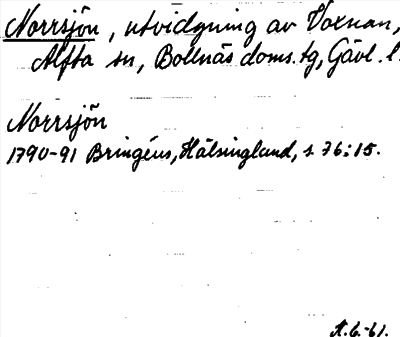 Norrsjön, utvidgning av Voxnan,
Alfta sn, Bollnäs doms. tg, Gävl. l.
Norrsjön
1790-91 Bringéus, Hälsingland, s 76:15.
6.-61.